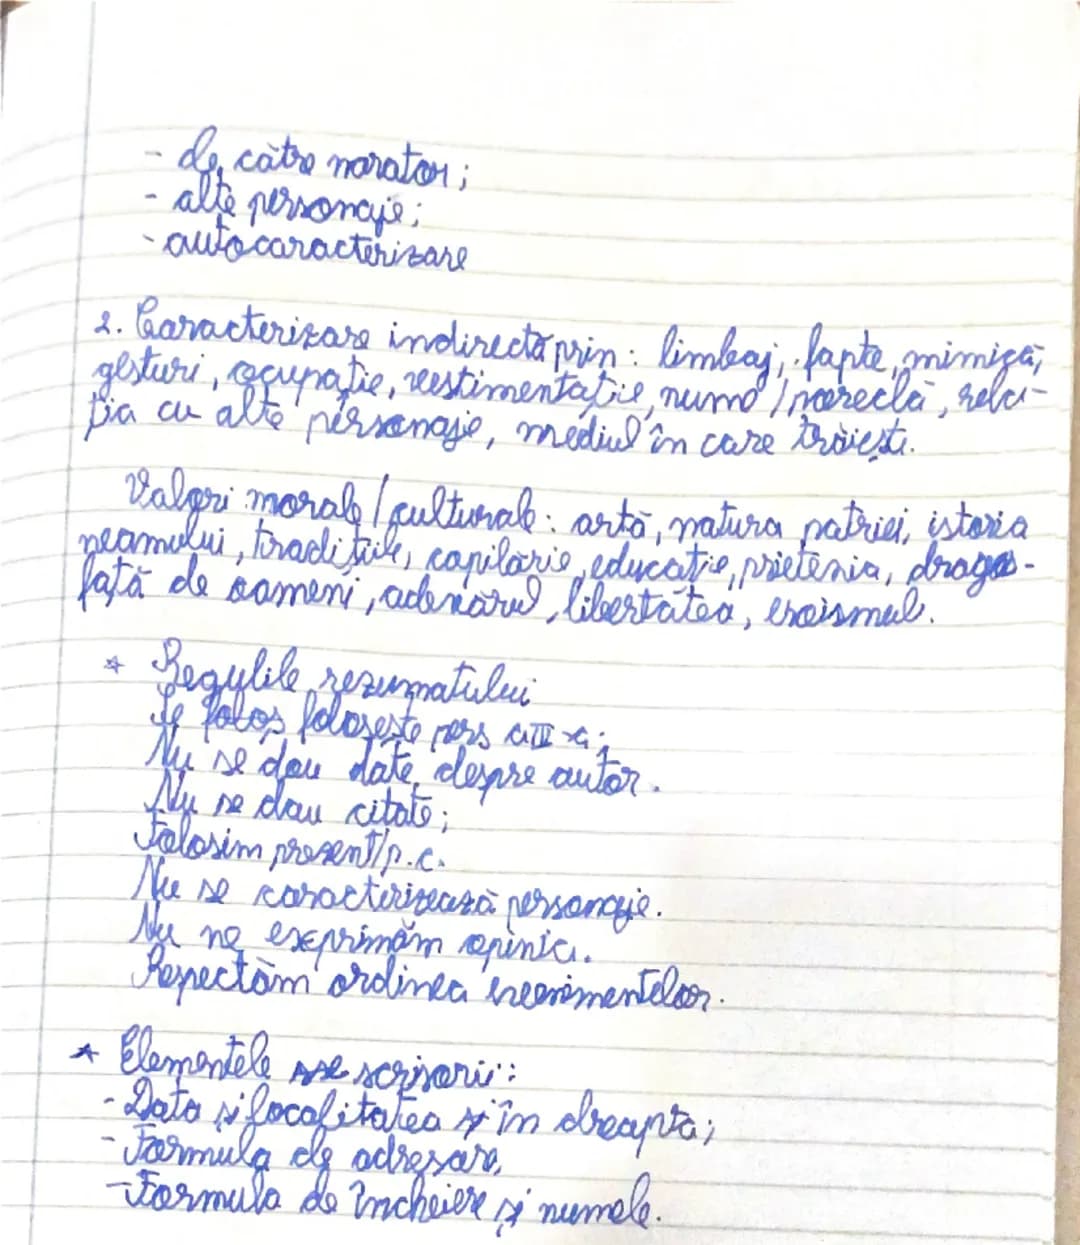 - de către narator;
- alte personaje;
- autocaracterizare
2. Caracterizare indirectă prin: limbaj, fapte, mimică,
gesturi, ocupație, vestimentație, nume / poreclă, rela-
ția cu alte personaje, mediul în care trăiești.
Valori morale / culturale: artă, natura patriei, istoria
neamului, tradițiile, copilărie, educație, prietenia, dragos-
față de oameni, adevărul, libertatea, eroismul.
* Regulile rezumatului
Se folos folosește pers a III-a;
Nu se dau date despre autor.
Nu se dau citate;
Folosim prezent/p.c.
Nu se caracterizează personaje.
Nu ne exprimăm opinia.
Respectăm ordinea evenimentelor.
* Elementele scrisorii:
- Data și localitatea în dreapta;
- Formula de adresare,
- Formula de încheiere și numele.